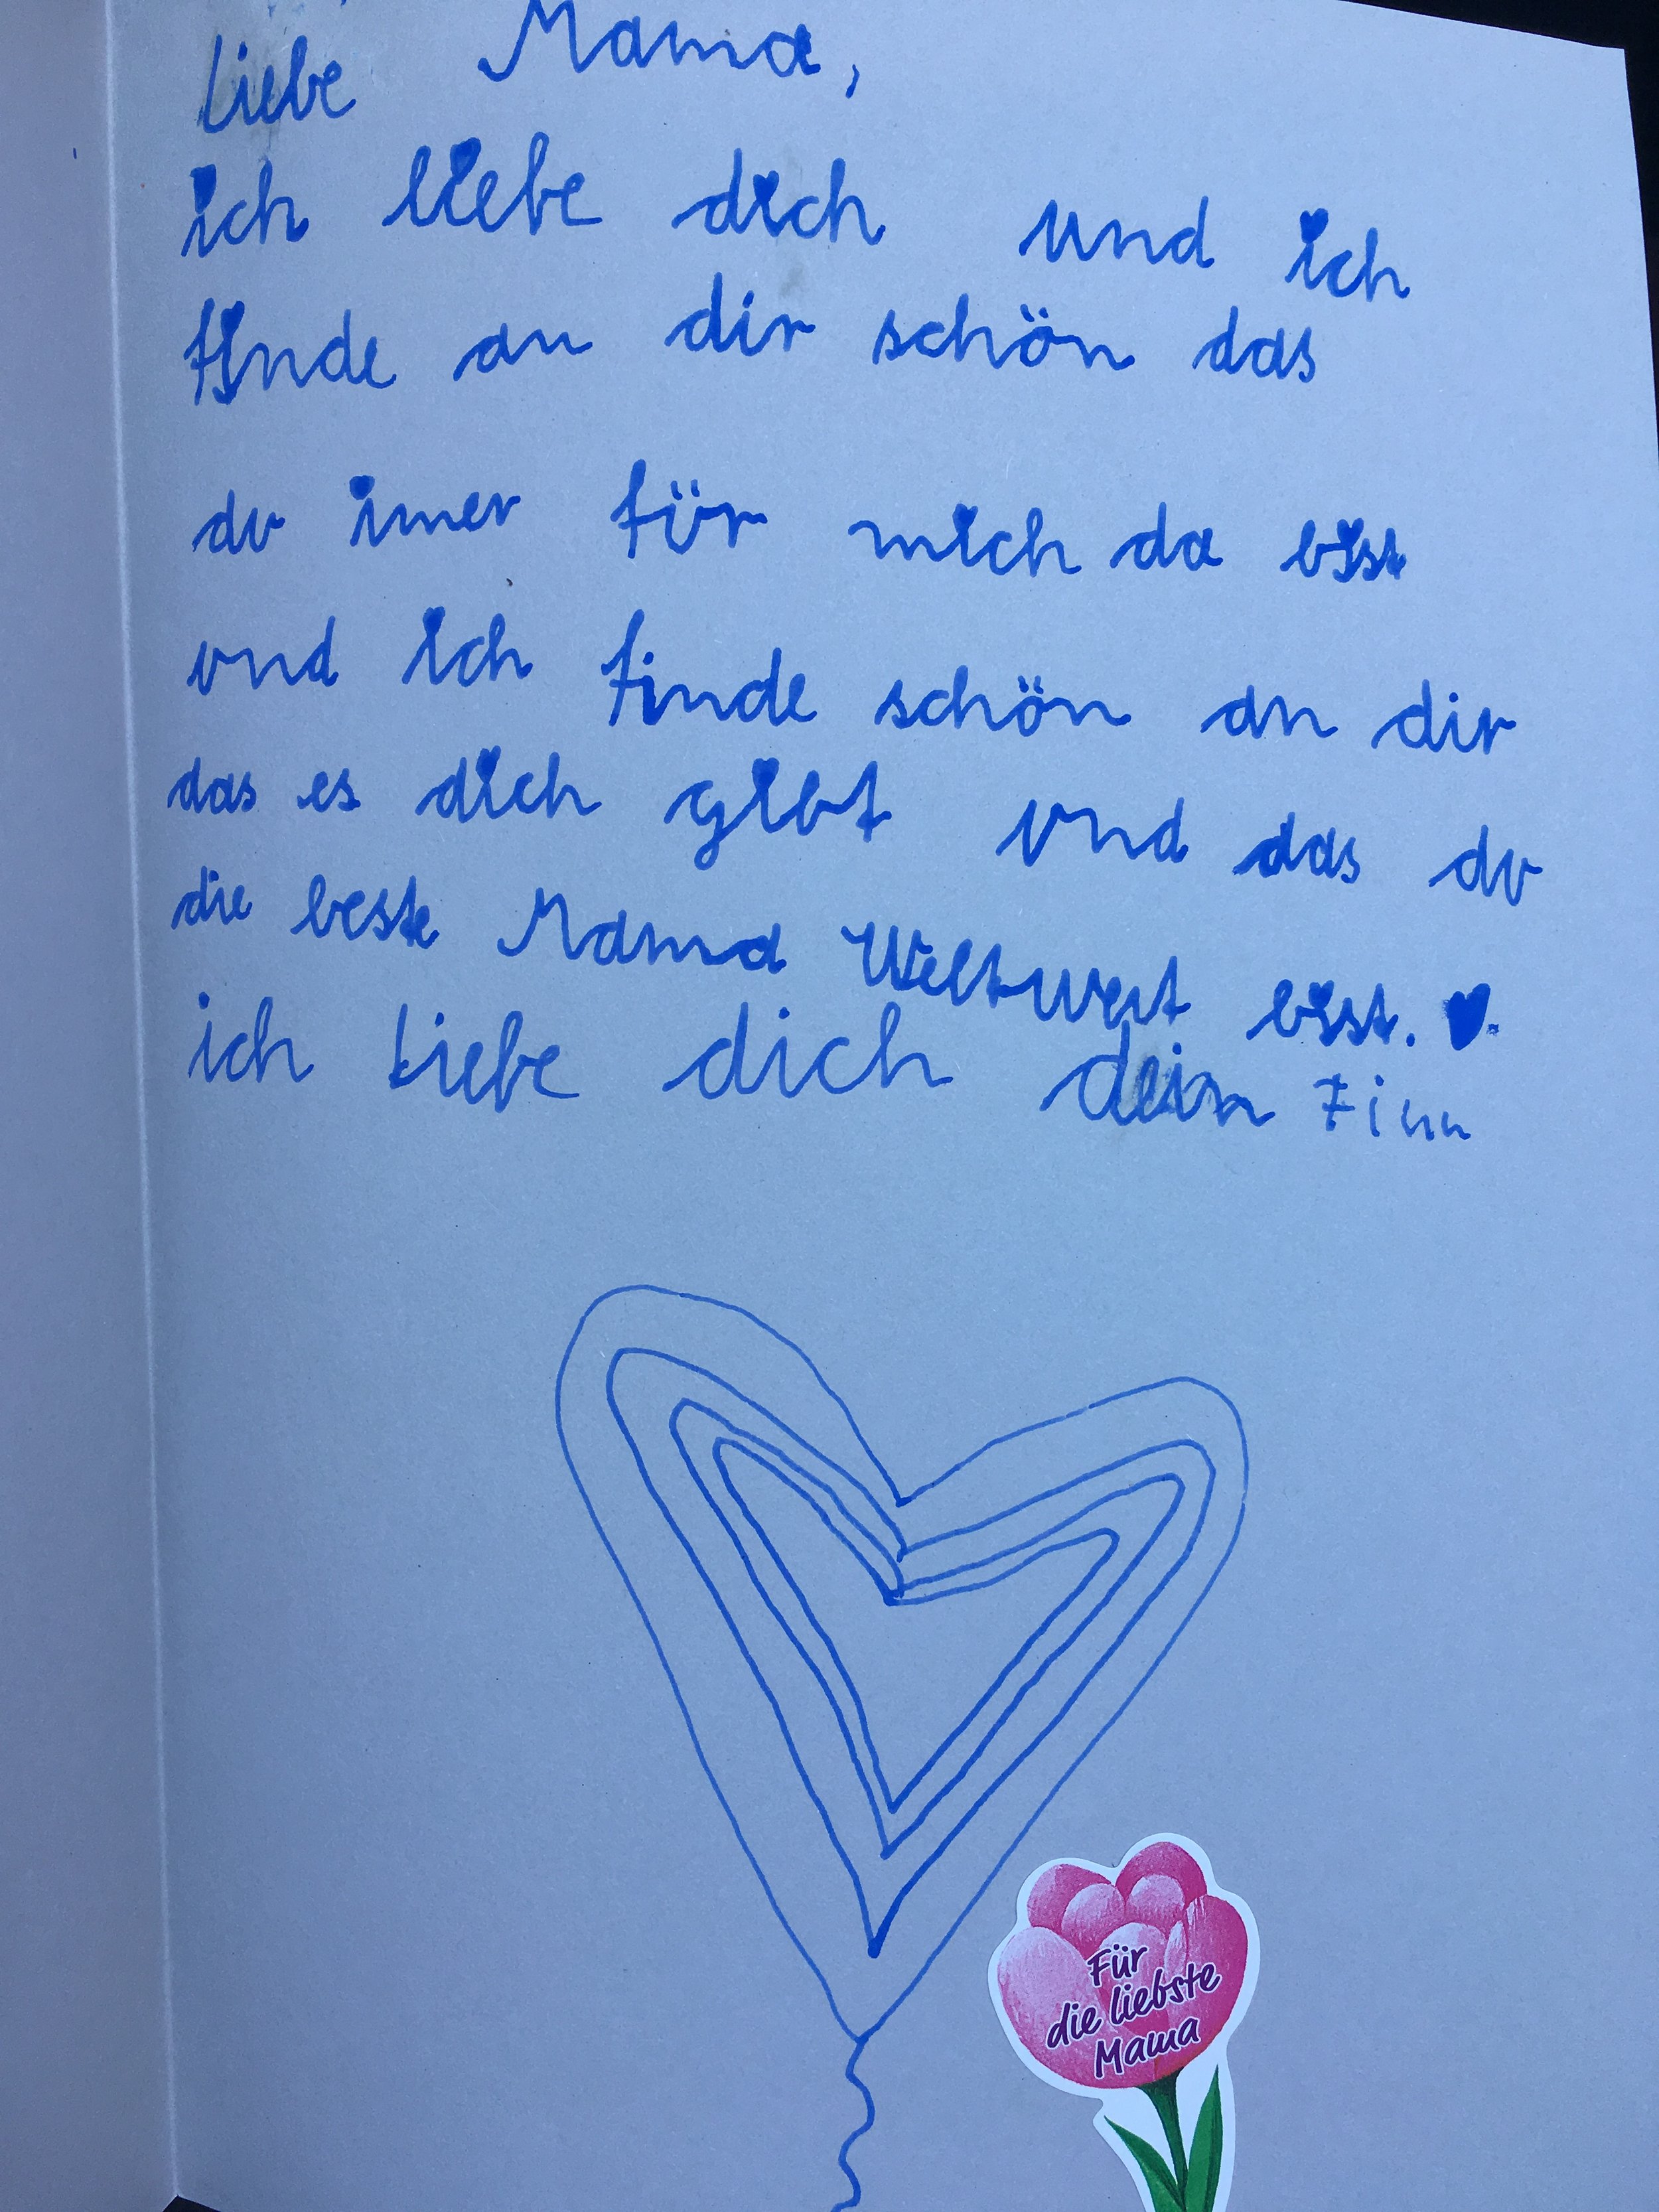 Liebe Mama,
ich liebe dich und ich
finde an dir schön das
du imer für mich da bist
und ich finde schön an dir
das es dich gibt und das du
die beste Mama Weltweit bist. ♥.
ich Liebe dich dein Finn
Für
die liebste
Mama